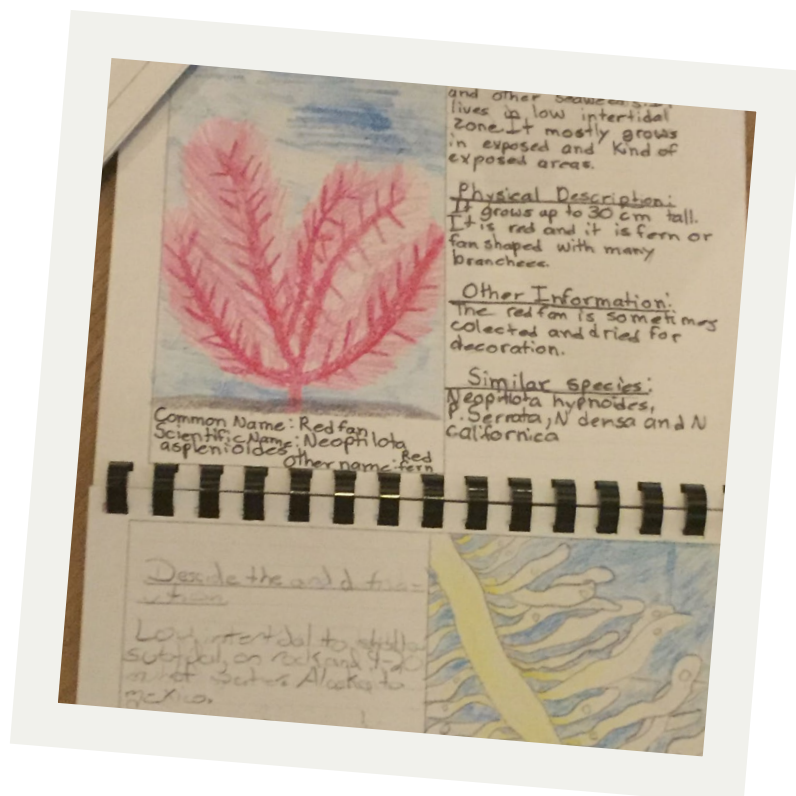 and other seaweeds
lives in low intertidal
zone. It mostly grows
in exposed and kind of
exposed areas.
Physical Description:
It grows up to 30 cm tall.
It is red and it is fern or
fan shaped with many
branchees.
Other Information:
The red fan is sometimes
colected and dried for
decoration.
Similar species:
Neoptilota hypnoides,
P. Serrata, N densa and N
californica
Common Name: Red fan
Scientific Name: Neoptilota
asplenioides
Other name: Red
fern
the and
Low intertidal to
subtidal, on rock and
Alaska to
mexico.